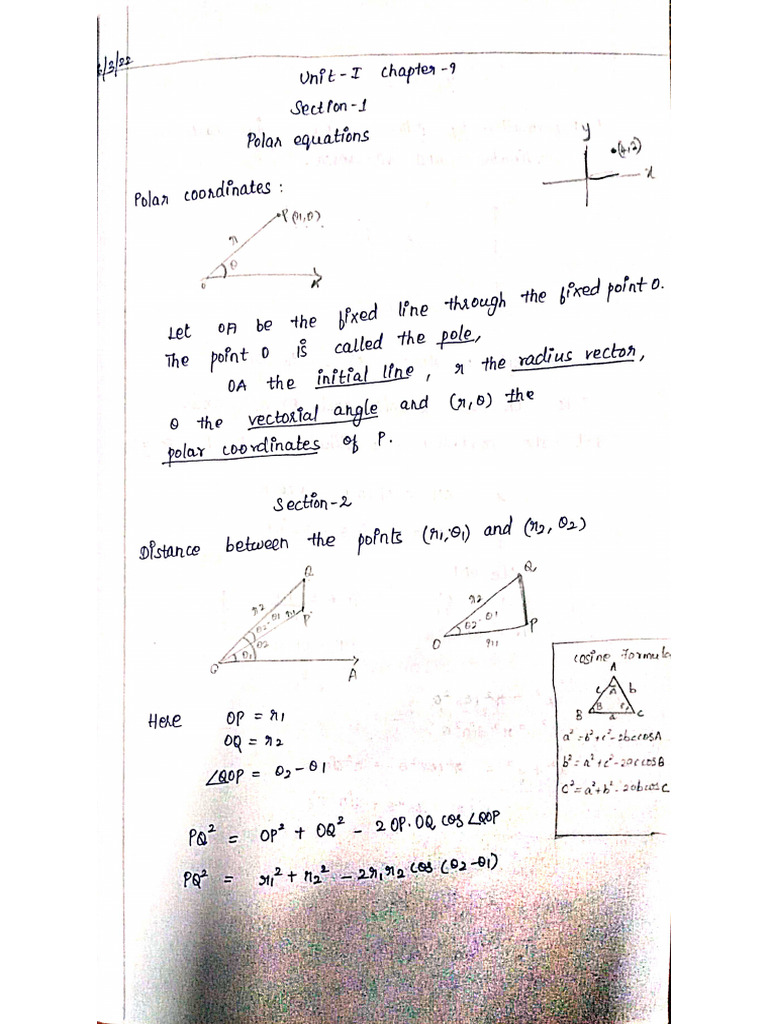 Unit-I Chapter-9
Section-1
Polar equations
y
x
Polar coordinates:
P(r,θ)
r
θ
O
Let OA be the fixed line through the fixed point O.
The point O is called the pole,
OA the initial line, r the radius vector,
θ the vectorial angle and (r,θ) the
polar coordinates of P.
Section-2
Distance between the points (r1,θ1) and (r2,θ2)
Q
r2
θ2-θ1
r1
P
θ2
θ1
O
A
Q
r2
θ2-θ1
O
r1
P
Cosine Formula
A
c A b
B B C C
a
a² = b²+c²-2bccosA
b² = a²+c²-2accosB
c² = a²+b²-2abcosC
Here OP = r1
OQ = r2
∠QOP = θ2-θ1
PQ² = OP² + OQ² - 2 OP.OQ cos∠QOP
PQ² = r1² + r2² - 2r1r2 cos(θ2-θ1)